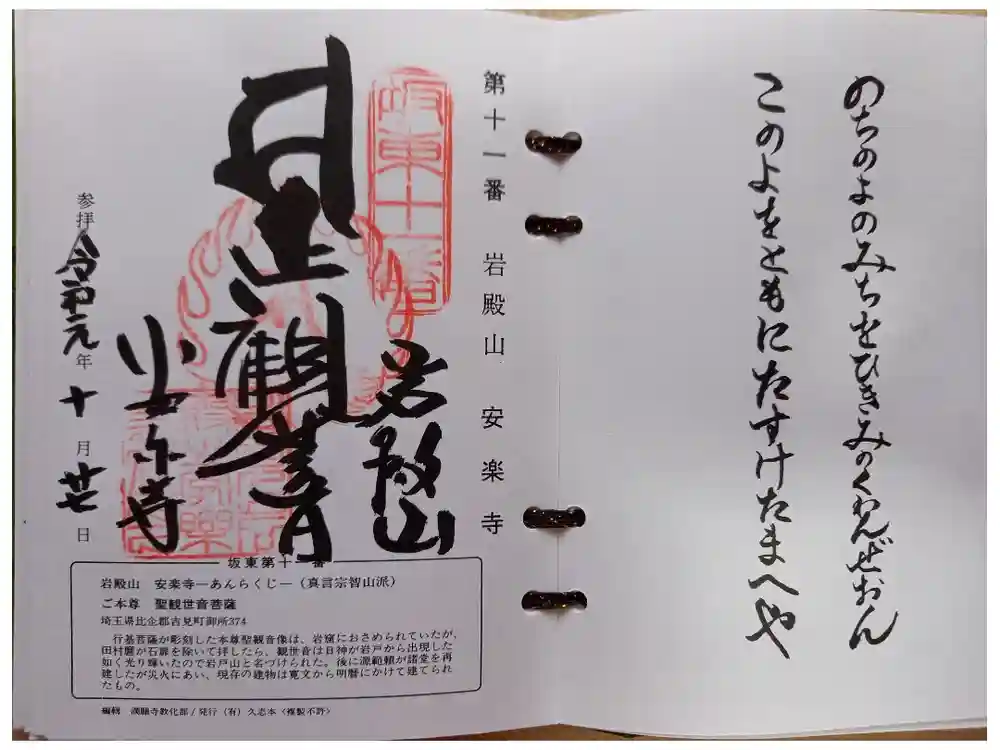 のちのよのみちをひきみのくわんぜおん
このよをともにたすけたまへや
第十一番 岩殿山 安楽寺
坂東十一番
岩殿山
聖観音
安楽寺
参拝 令和元年十月廿七日
坂東第十一番
岩殿山 安楽寺―あんらくじ―（真言宗智山派）
ご本尊 聖観世音菩薩
埼玉県比企郡吉見町御所374
行基菩薩が彫刻した本尊聖観音像は、岩窟におさめられていたが、
田村麿が石扉を除いて拝したら、観世音は日神が岩戸から出現した
如く光り輝いたので岩戸山と名づけられた。後に源範頼が諸堂を再
建したが災火にあい、現存の建物は寛文から明暦にかけて建てられ
たもの。
編輯 満願寺教化部/発行（有）久志本〈複製不許〉